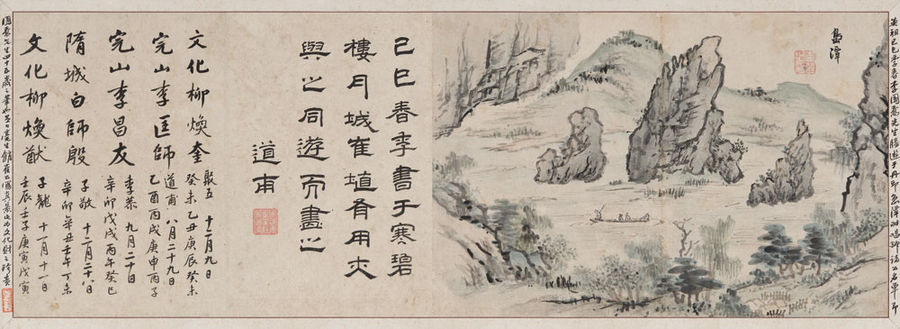 島潭
己巳春季書于寒碧
樓月城崔埴有用夫
與之同遊而畫之
道甫
文化柳煥奎
聚五 十二月九日
癸未乙丑庚辰癸未
完山李匡師
道甫 八月二十九日
乙酉丙戌庚申丙子
完山李昌友
季恭 九月二十日
辛卯戊戌丙午癸巳
隋城白師殷
子敬 十二月二十八日
辛卯辛丑壬午丁未
文化柳煥猷
子龍 十一月十一日
壬辰壬子庚寅戊寅
圓嶠先生四十五歲之筆